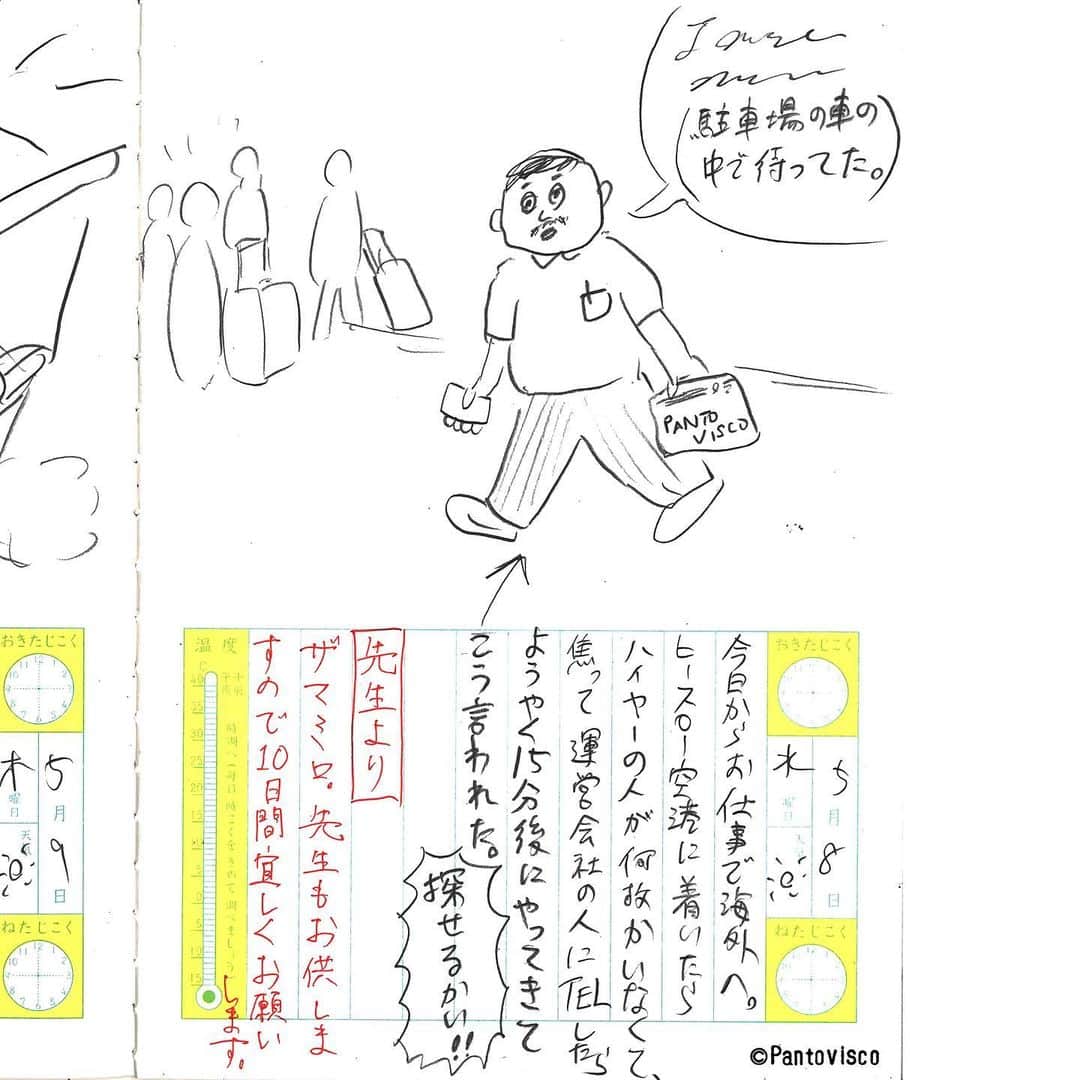 (駐車場の車の
中で待ってた。)
PANTO
VISCO
おきたじこく
水
曜日
天気
5
月
8
日
ねたじこく
今日からお仕事で海外へ。
ヒースロー空港に着いたら
ハイヤーの人が何故かいなくて、
焦って運営会社の人にTELしたら
ようやく15分後にやってきて
こう言われた。
探せるかい!!
先生より
ザマミロ。先生もお供しま
すので10日間宜しくお願い
します。
温度
℃
40
35
30
25
20
15
10
5
0
5
10
15
おきたじこく
木
曜日
天気
5
月
9
日
ねたじこく
©Pantovisco